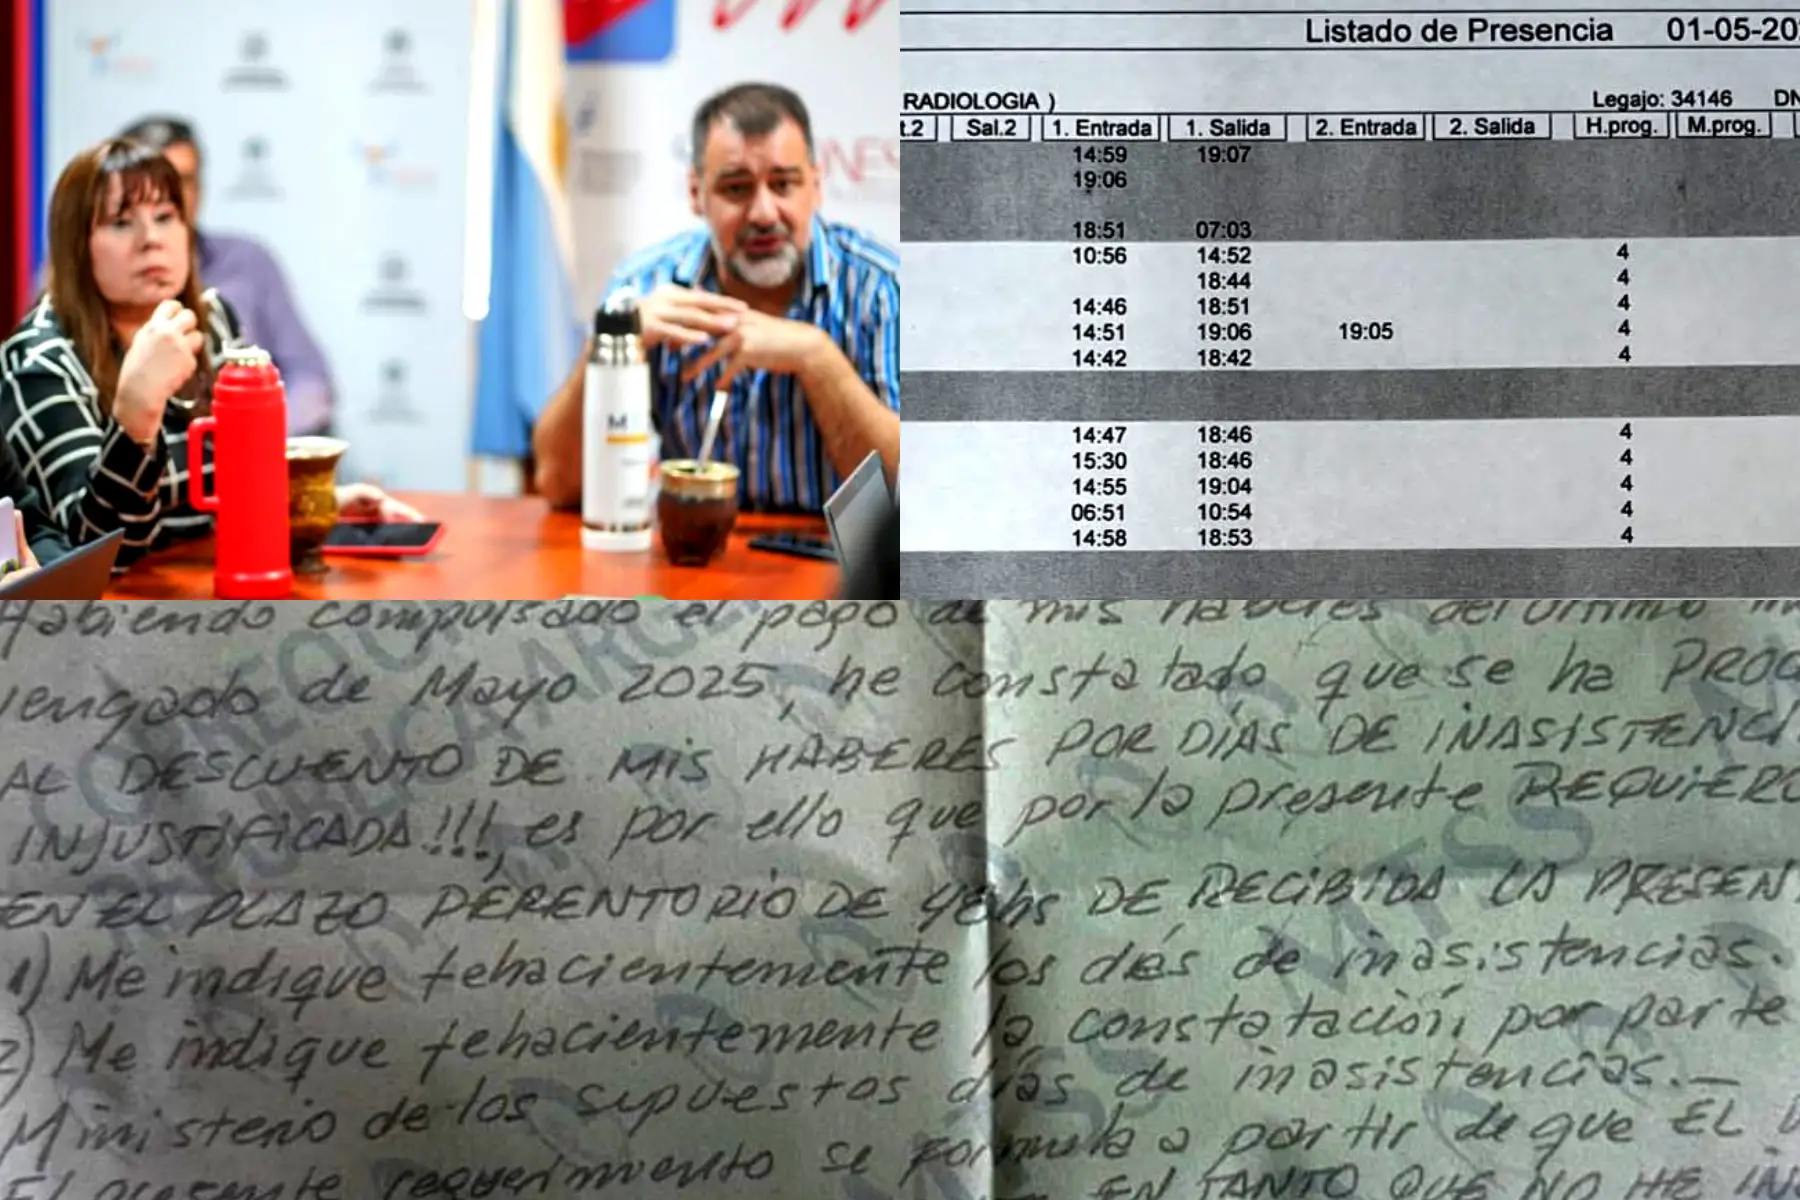 M
NES
Listado de Presencia 01-05-20
RADIOLOGIA ) Legajo: 34146 DN
t.2 Sal.2 1. Entrada 1. Salida 2. Entrada 2. Salida H.prog. M.prog.
14:59 19:07
19:06
18:51 07:03
10:56 14:52 4
18:44 4
14:46 18:51 4
14:51 19:06 19:05 4
14:42 18:42 4
14:47 18:46 4
15:30 18:46 4
14:55 19:04 4
06:51 10:54 4
14:58 18:53 4
Habiendo compulsado el pago de mis haberes del último
engado de Mayo 2025, he constatado que se ha PROC
AL DESCUENTO DE MIS HABERES POR DÍAS DE INASISTENCI
INJUSTIFICADA!!!, es por ello que por la presente REQUIERO
EN EL PLAZO PERENTORIO DE 48hs DE RECIBIDA LA PRESENT
1) Me indique fehacientemente los días de inasistencias.
2) Me indique fehacientemente la constatación, por parte
Ministerio de los supuestos días de inasistencias.—
El presente requerimiento se formula a partir de que EL
EN TANTO QUE NO HE IN
MTSS